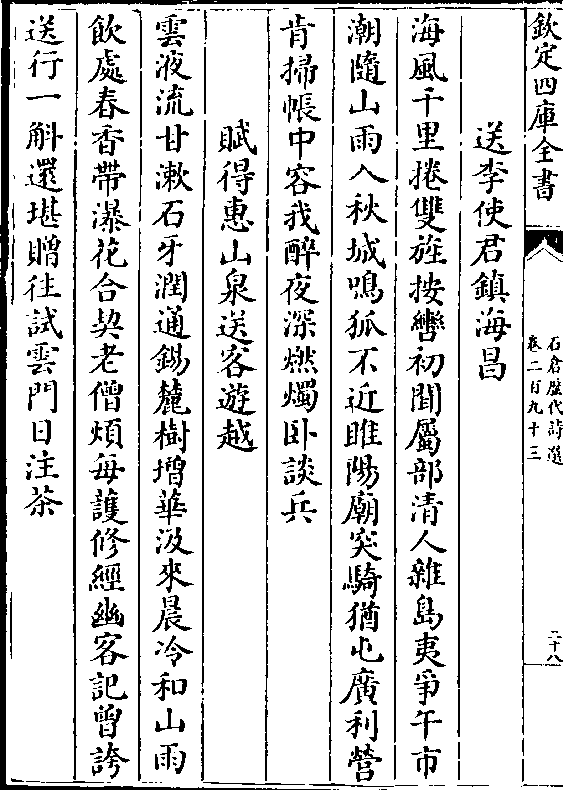 欽定四庫全書
石倉歷代詩選
卷二百九十三
二十八
送李使君鎮海昌
海風千里捲雙旌按轡初聞屬部清人雜島夷爭午市
潮隨山雨入秋城鳴狐不近睢陽廟突騎猶屯廣利營
肯掃帳中容我醉夜深燃燭卧談兵
賦得惠山泉送客遊越
雲液流甘漱石牙潤通錫麓樹增華汲來晨冷和山雨
飲處春香帶瀑花合契老僧煩每護修經幽客記曾誇
送行一斛還堪贈往試雲門日注茶